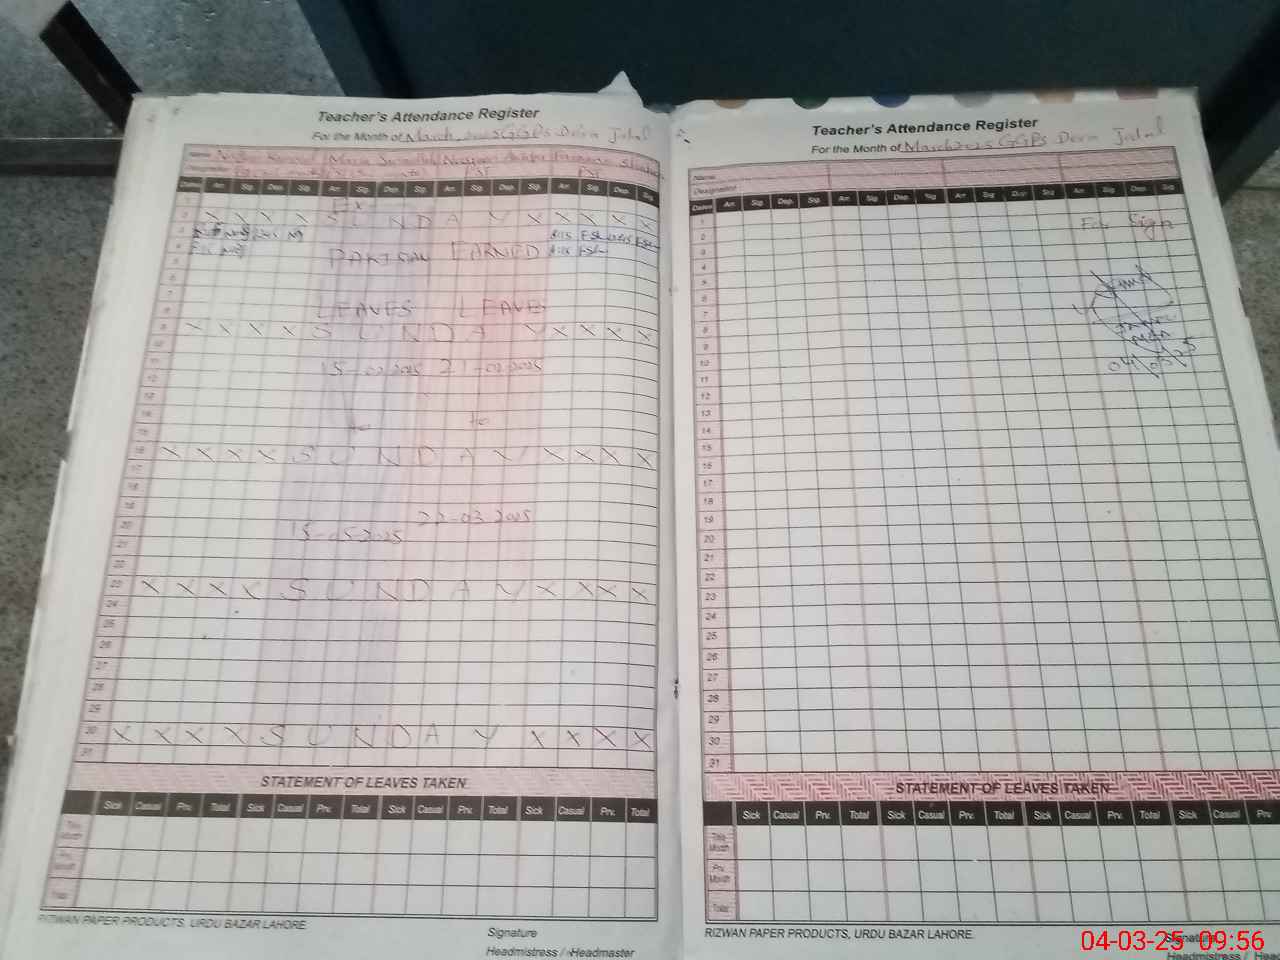 Teacher's Attendance Register
For the Month of March 2025 GGPS Dera Jalal
Name
PST PST
Dates Arr. Sig. Dep. Sig. Arr. Sig. Dep. Sig. Arr. Sig. Dep. Sig. Arr. Sig. Dep. Sig.
1
2 X X X X S U N D A Y X X X X
3
4 EARNED
5
6
7
8 LEAVES LEAVE
9 X X X X S U N D A Y X X X X
10
11 15-02-2025 21-02-2025
12
13
14 to to
15
16 X X X X S U N D A Y X X X X
17
18
19
20 15-05-2025 22-03-2025
21
22
23 X X X X S U N D A Y X X X X
24
25
26
27
28
29
30 X X X X S U N D A Y X X X X
31
STATEMENT OF LEAVES TAKEN
Sick Casual Prv. Total Sick Casual Prv. Total Sick Casual Prv. Total Sick Casual Prv. Total
This Month
Prv. Month
Total
RIZWAN PAPER PRODUCTS, URDU BAZAR LAHORE.
Signature
Headmistress / Headmaster
Teacher's Attendance Register
For the Month of March 2025 GGPS Dera Jalal
Name
Designation
Dates Arr. Sig. Dep. Sig. Arr. Sig. Dep. Sig. Arr. Sig. Dep. Sig. Arr. Sig. Dep. Sig.
1 For Sign
2
3
4
5
6
7
8
9
10 04/03/25
11
12
13
14
15
16
17
18
19
20
21
22
23
24
25
26
27
28
29
30
31
STATEMENT OF LEAVES TAKEN
Sick Casual Prv. Total Sick Casual Prv. Total Sick Casual Prv. Total Sick Casual Prv.
This Month
Prv. Month
Total
RIZWAN PAPER PRODUCTS, URDU BAZAR LAHORE.
Signature
Headmistress / Head
04-03-25 09:56